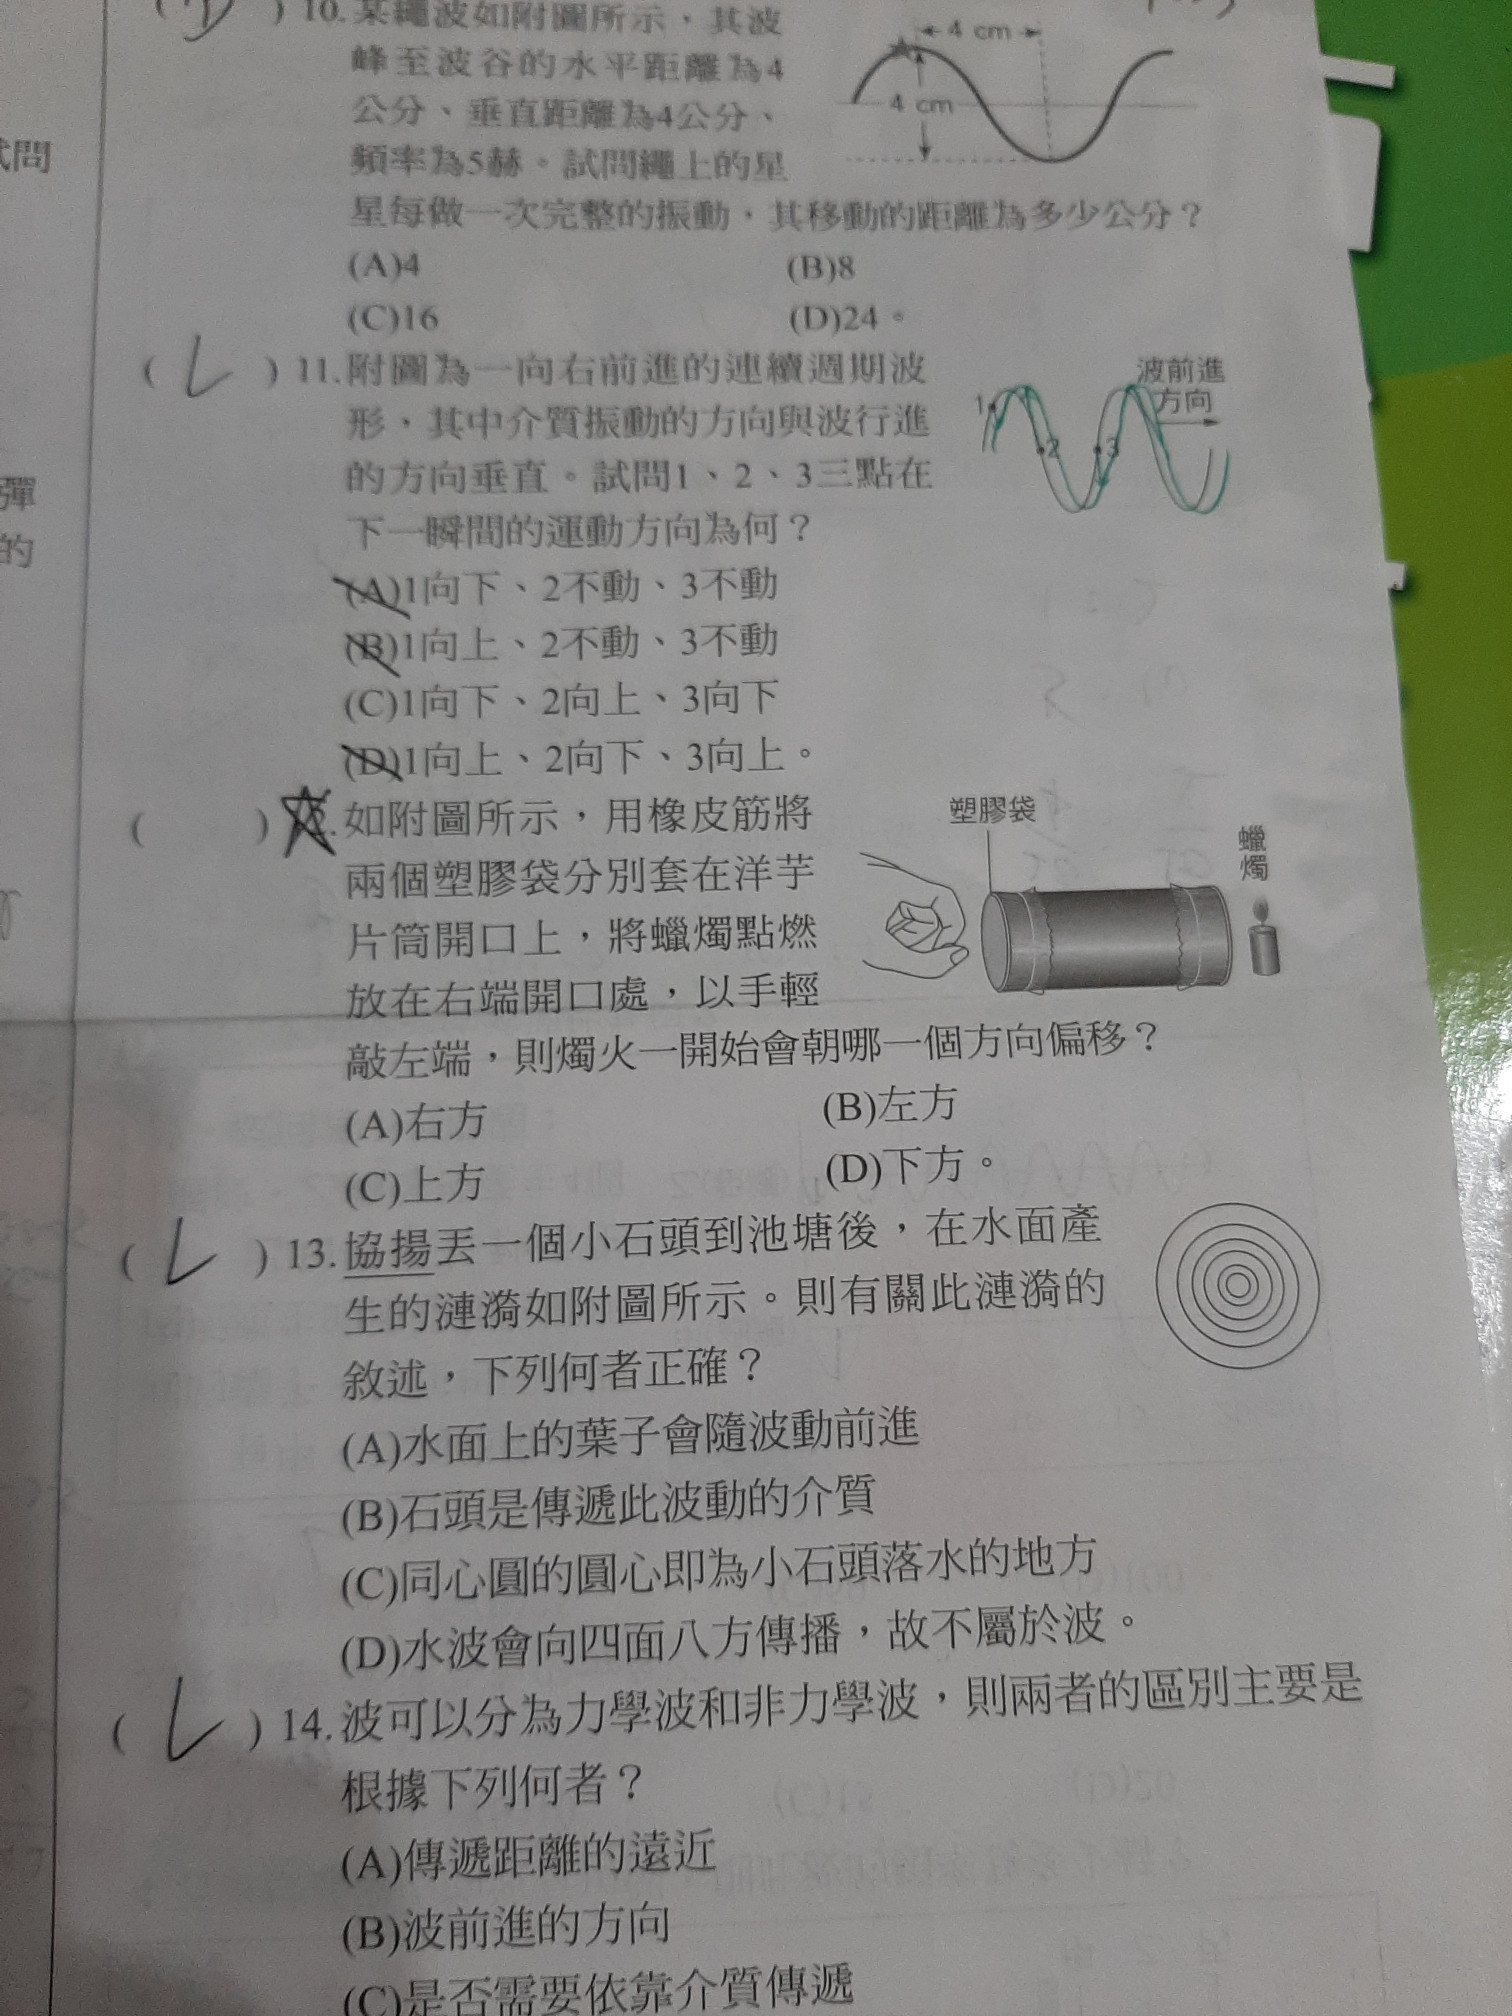 10.某繩波如附圖所示，其波
峰至波谷的水平距離為4
公分、垂直距離為4公分、
頻率為5赫。試問繩上的星
星每做一次完整的振動，其移動的距離為多少公分？
(A)4 (B)8
(C)16 (D)24。
4 cm
4 cm
11.附圖為一向右前進的連續週期波
形，其中介質振動的方向與波行進
的方向垂直。試問1、2、3三點在
下一瞬間的運動方向為何？
(A)1向下、2不動、3不動
(B)1向上、2不動、3不動
(C)1向下、2向上、3向下
(D)1向上、2向下、3向上。
波前進
方向
1
2
3
如附圖所示，用橡皮筋將
兩個塑膠袋分別套在洋芋
片筒開口上，將蠟燭點燃
放在右端開口處，以手輕
敲左端，則燭火一開始會朝哪一個方向偏移？
(A)右方 (B)左方
(C)上方 (D)下方。
塑膠袋
蠟燭
13.協揚丟一個小石頭到池塘後，在水面產
生的漣漪如附圖所示。則有關此漣漪的
敘述，下列何者正確？
(A)水面上的葉子會隨波動前進
(B)石頭是傳遞此波動的介質
(C)同心圓的圓心即為小石頭落水的地方
(D)水波會向四面八方傳播，故不屬於波。
14.波可以分為力學波和非力學波，則兩者的區別主要是
根據下列何者？
(A)傳遞距離的遠近
(B)波前進的方向
(C)是否需要依靠介質傳遞
試問
彈
的